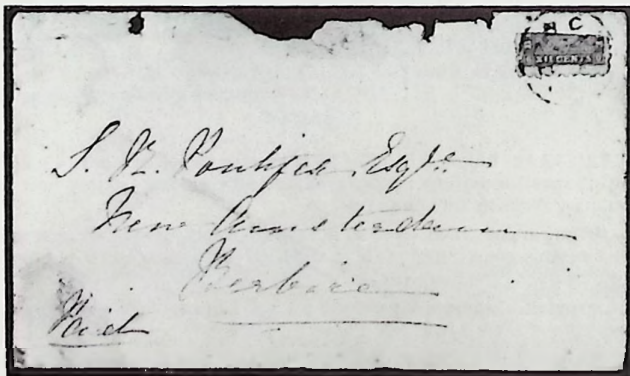 B C
SIX CENTS
S. N. Pontifex Esqre
New Amsterdam
Berbice
Paid